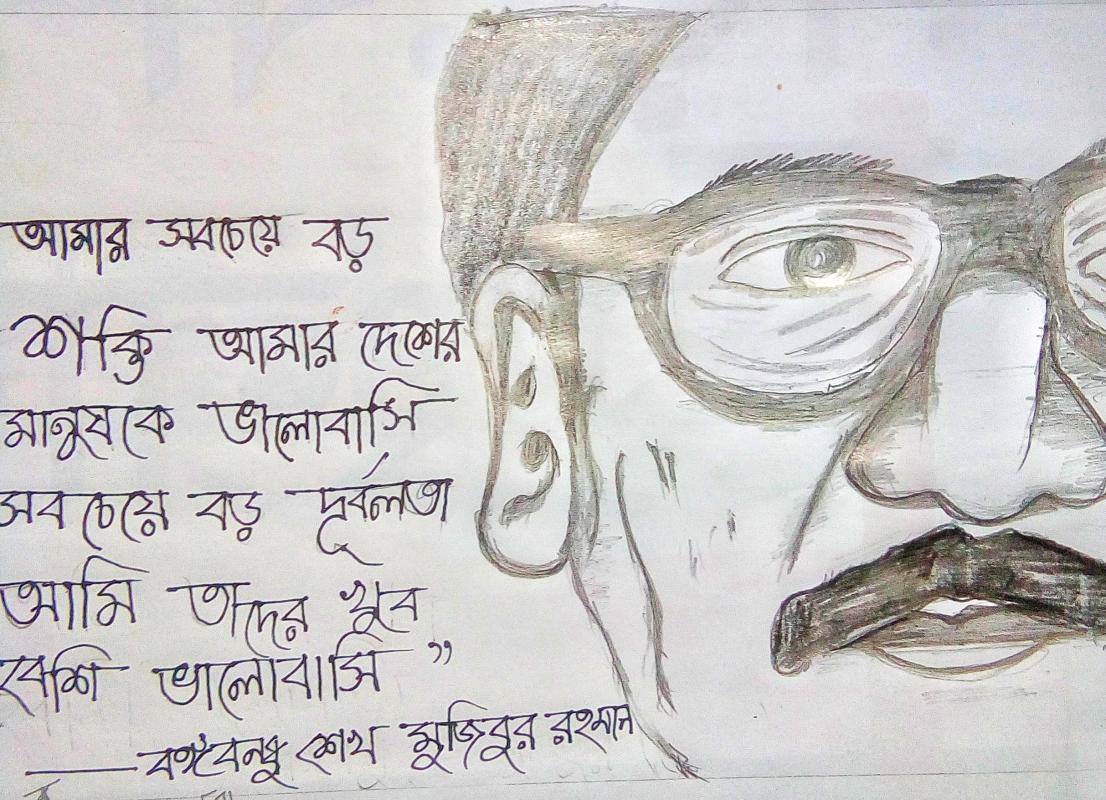 আমার সবচেয়ে বড়
শক্তি আমার দেশের
মানুষকে ভালোবাসি
সবচেয়ে বড় দূর্বলতা
আমি তাদের খুব
বেশি ভালোবাসি ”
— বঙ্গবন্ধু শেখ মুজিবুর রহমান